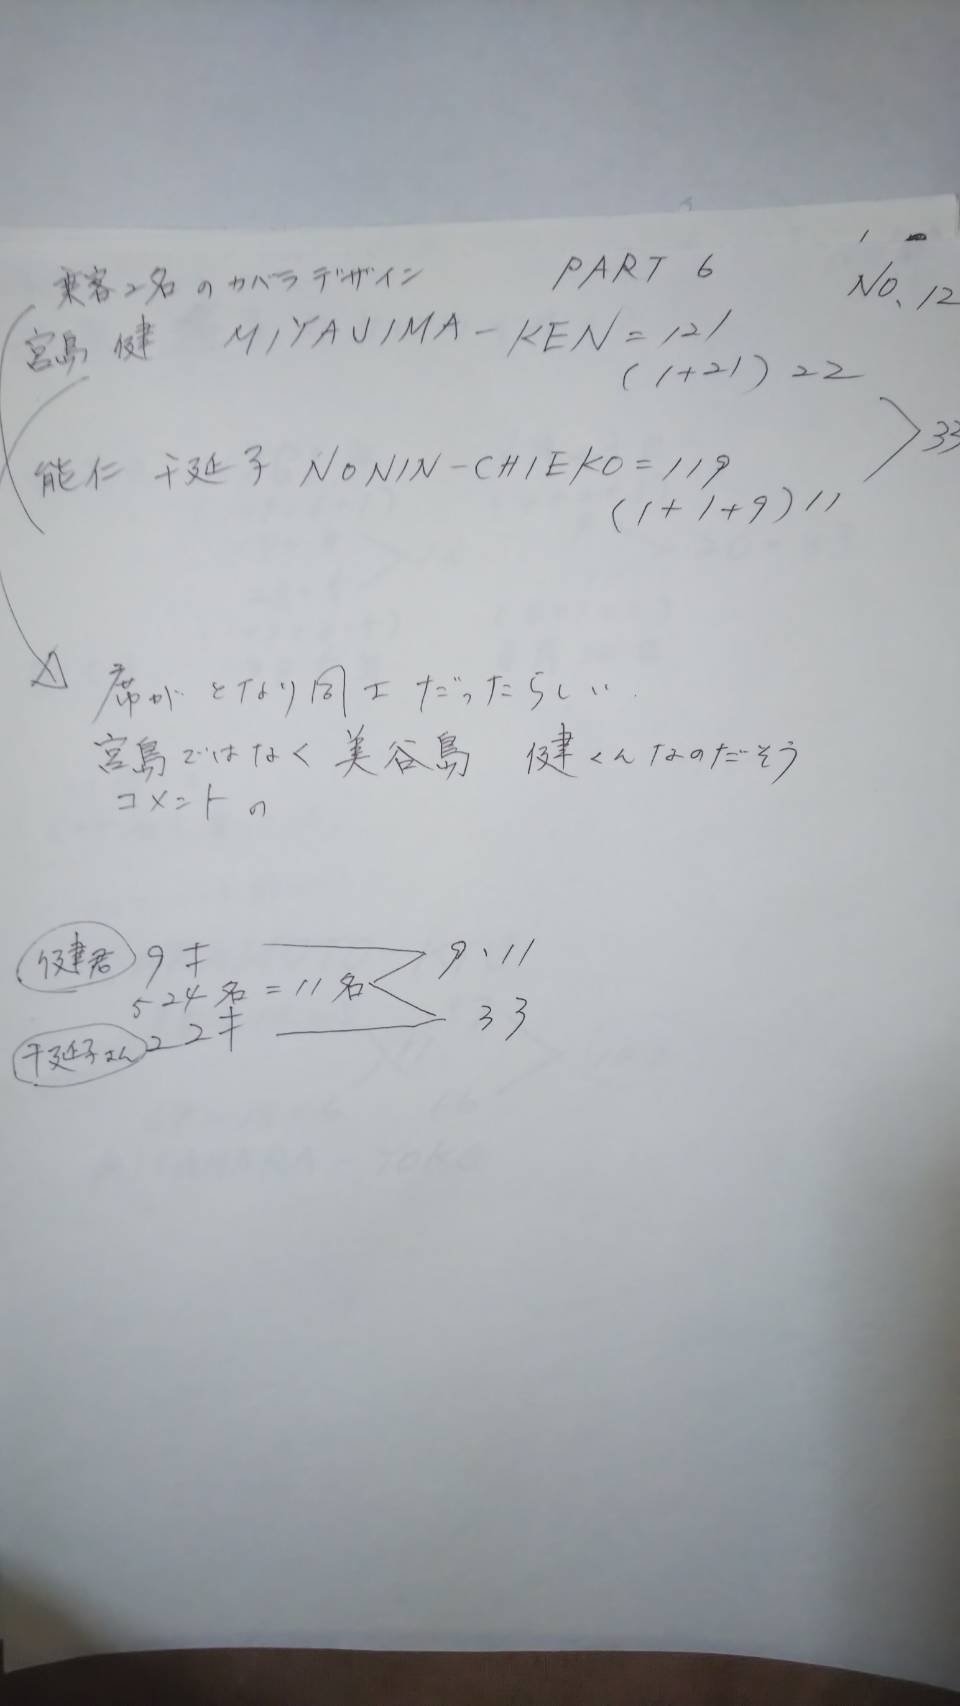 乗客2名のカバラデザイン PART 6 NO.12
宮島 健 MIYAJIMA-KEN=121
(1+21) 22
33
能仁 千延子 NONIN-CHIEKO=119
(1+1+9) 11
席がとなり同士だったらしい.
宮島ではなく美谷島 健くんなのだそう
コメントの
健君 9才 9、11
524名=11名
千延子さん 22才 33